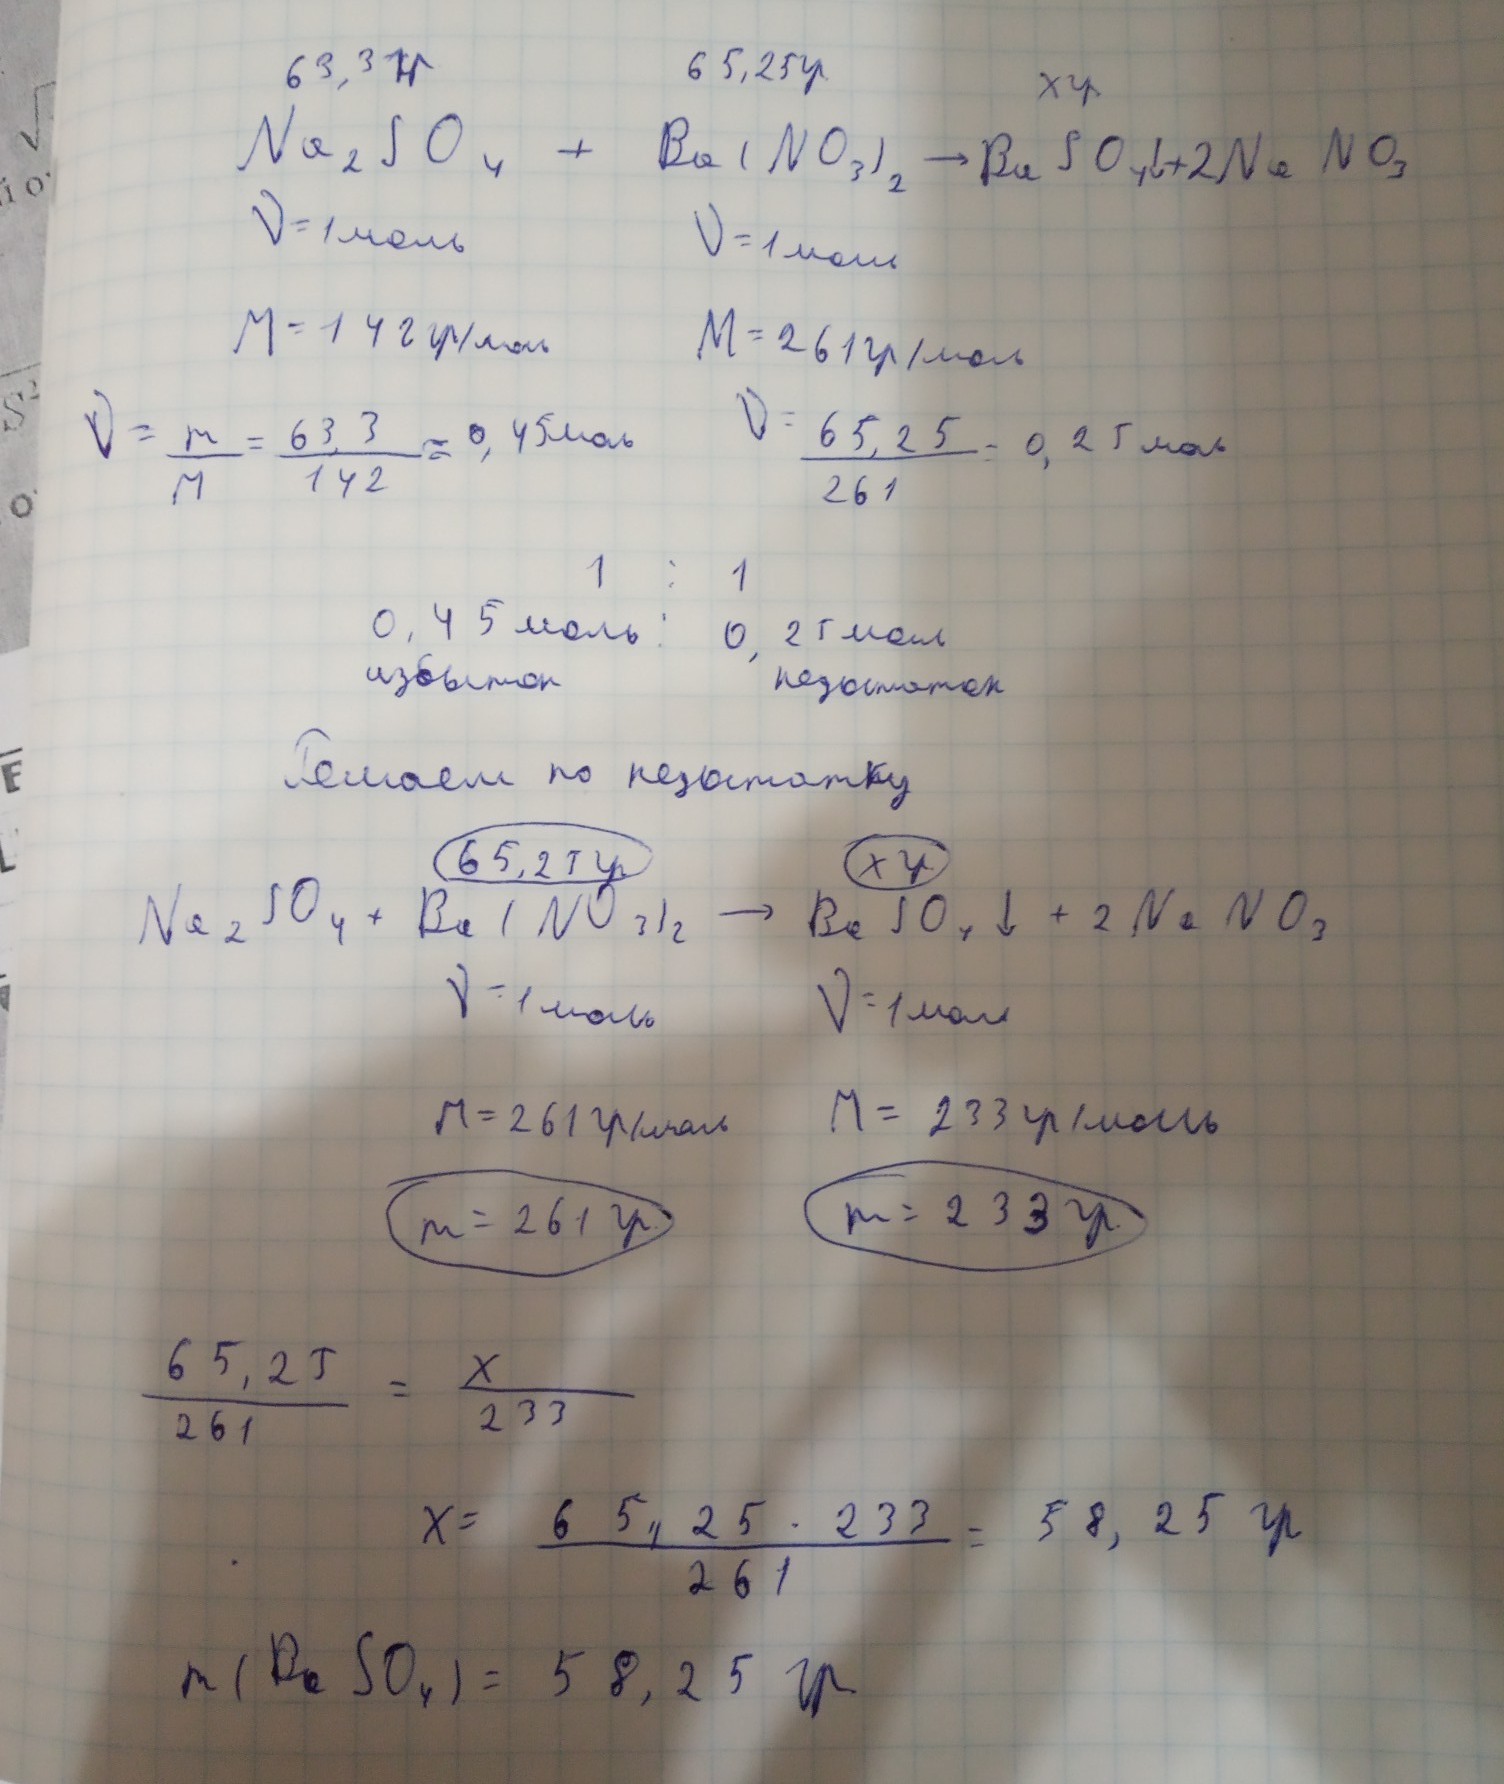 63,3гр 65,25гр xгр
Na₂SO₄ + Ba(NO₃)₂ → BaSO₄↓+2NaNO₃
ν=1моль ν=1моль
M=142гр/моль M=261гр/моль
ν = m/M = 63,3/142 = 0,45моль ν= 65,25/261 = 0,25моль
1 : 1
0,45моль : 0,25моль
избыток недостаток
Решаем по недостатку
65,25гр xгр
Na₂SO₄ + Ba(NO₃)₂ → BaSO₄↓ + 2NaNO₃
ν=1моль ν=1моль
M=261гр/моль M= 233гр/моль
m=261гр m=233гр
65,25/261 = x/233
x= 65,25·233/261 = 58,25 гр
m(BaSO₄)= 58,25 гр